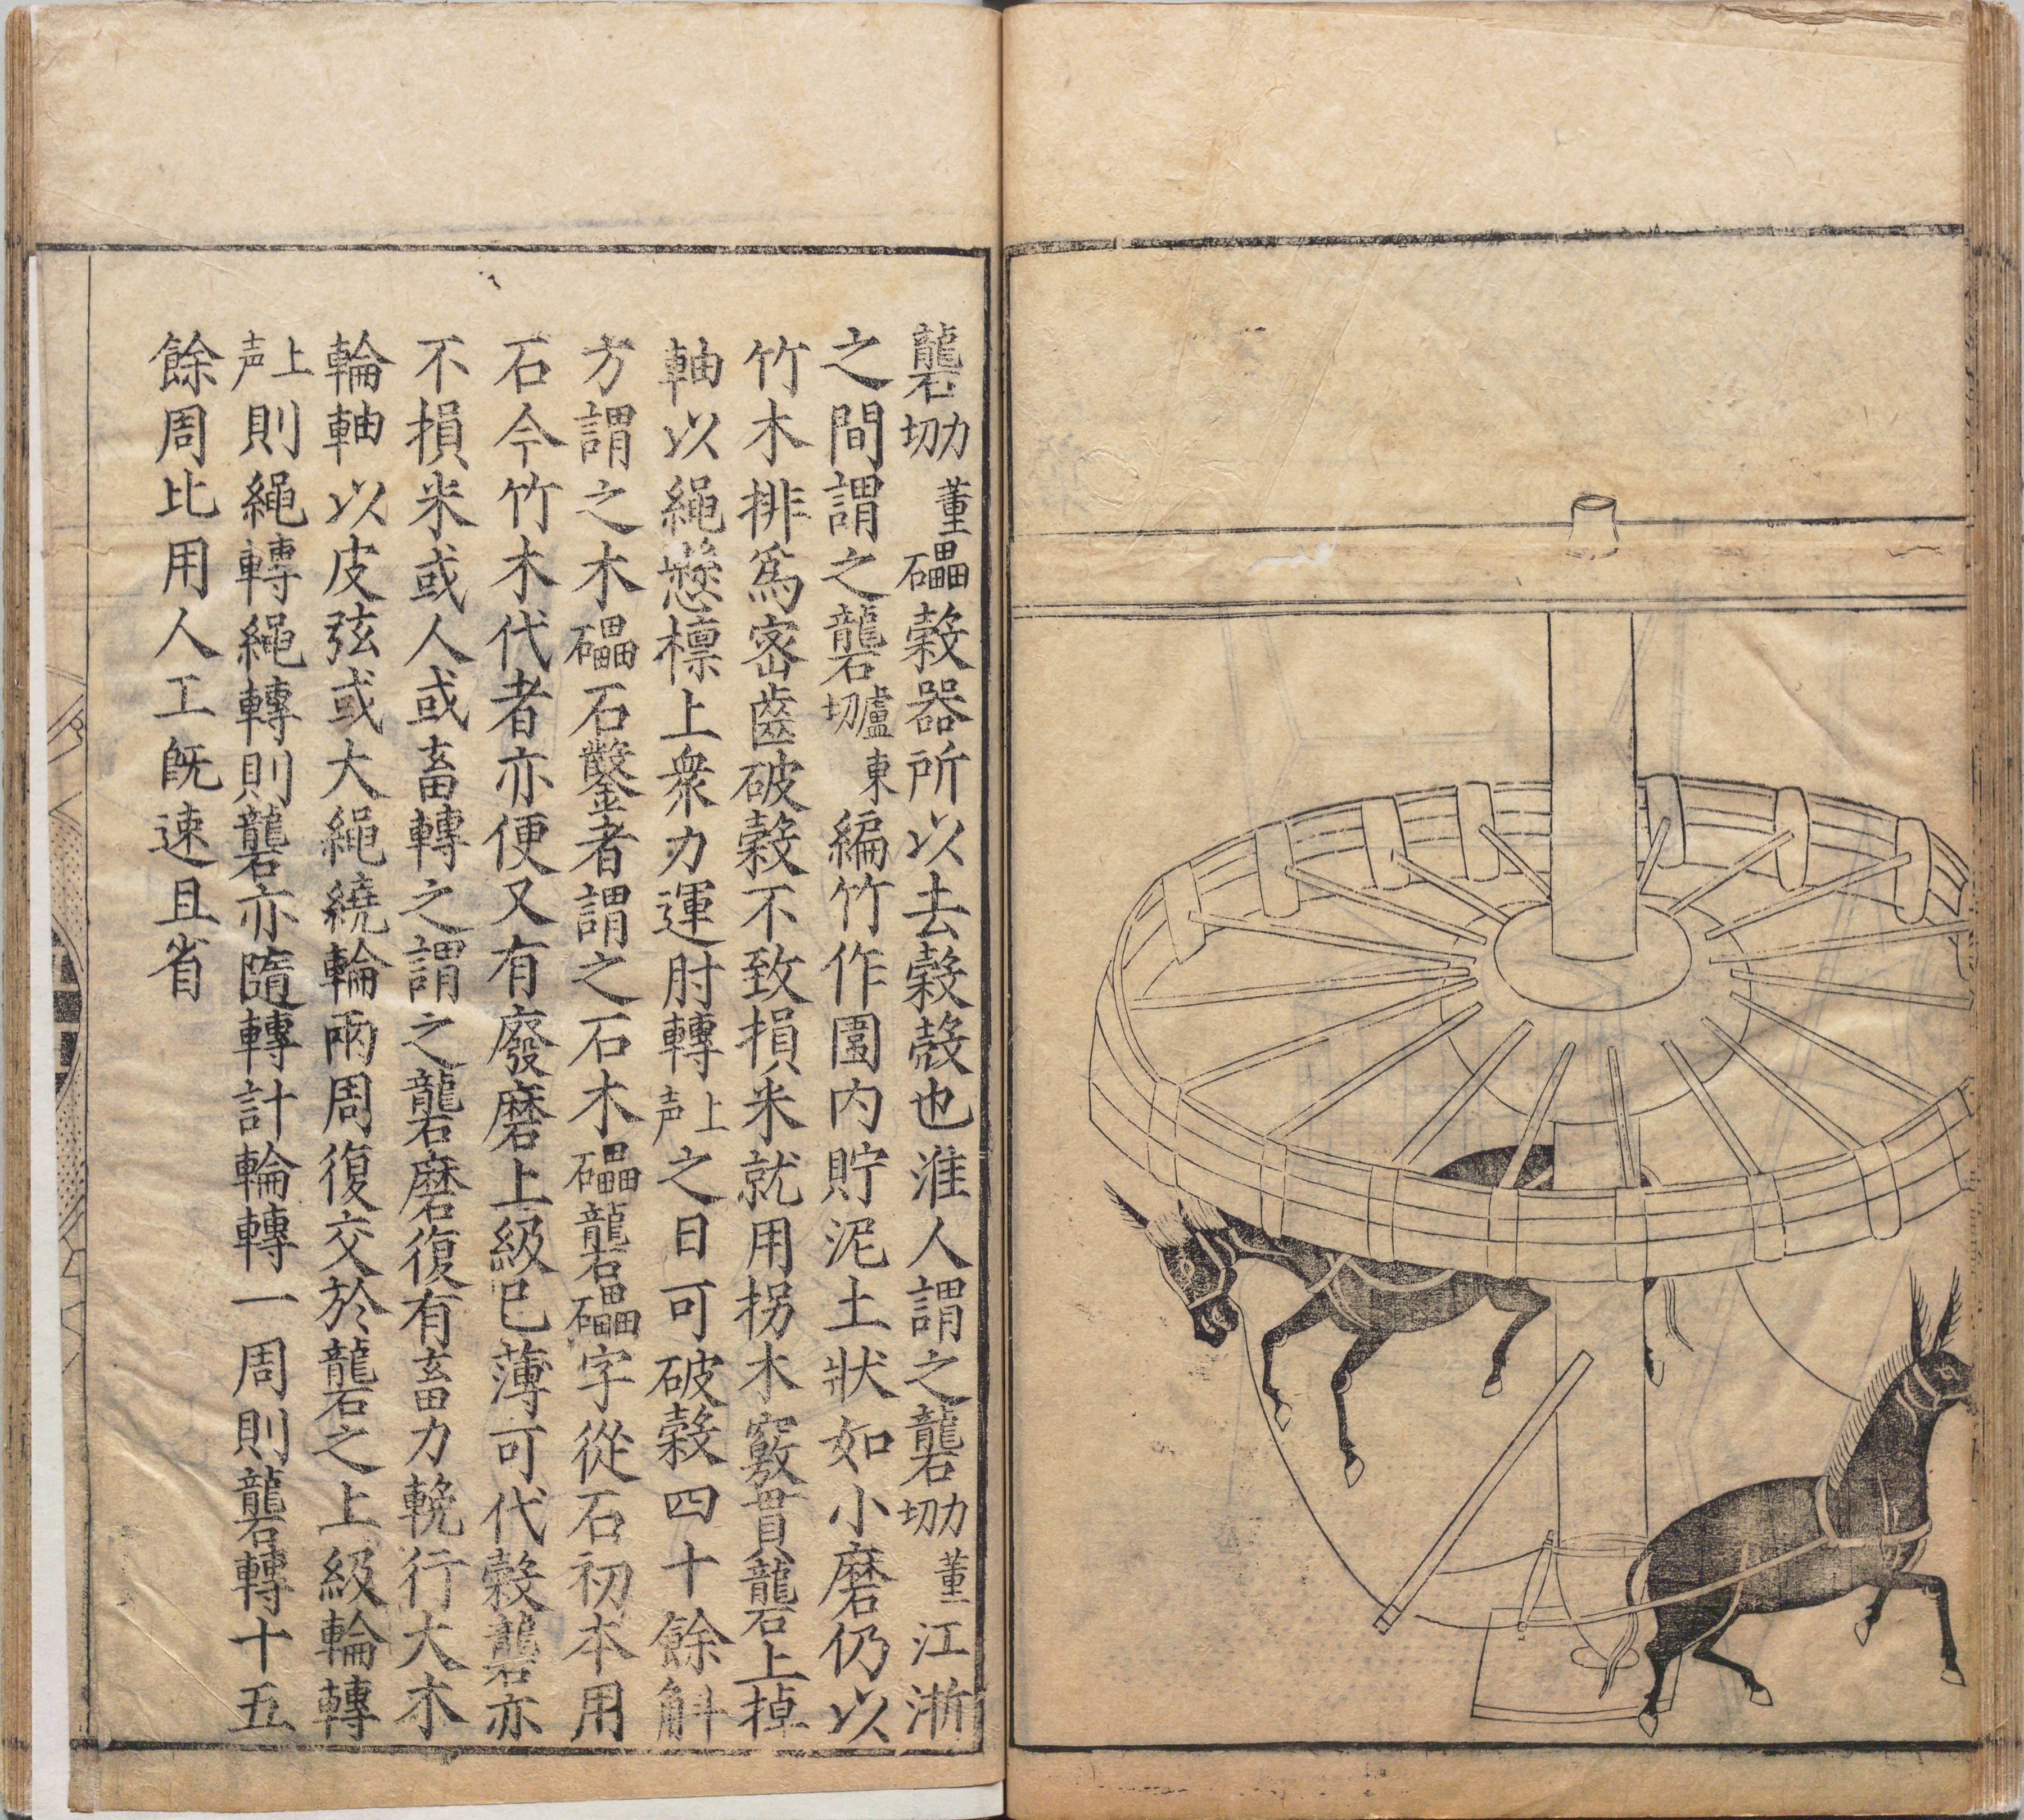 礱力董切礧穀器所以去穀殼也淮人謂之礱力董切江浙
之間謂之礱盧東切編竹作圍内貯泥土狀如小磨仍以
竹木排爲宻齒破穀不致損米就用拐木竅貫礱上掉
軸以繩懸檁上衆力運肘轉上声之日可破穀四十餘斛
方謂之木礧石鑿者謂之石木礧礱礧字從石初本用
石今竹木代者亦便又有廢磨上級已薄可代穀礱亦
不損米或人或畜轉之謂之礱磨復有畜力輓行大木
輪軸以皮弦或大繩繞輪兩周復交於礱之上級輪轉
上声則繩轉繩轉則礱亦隨轉計輪轉一周則礱轉十五
餘周比用人工旣速且省